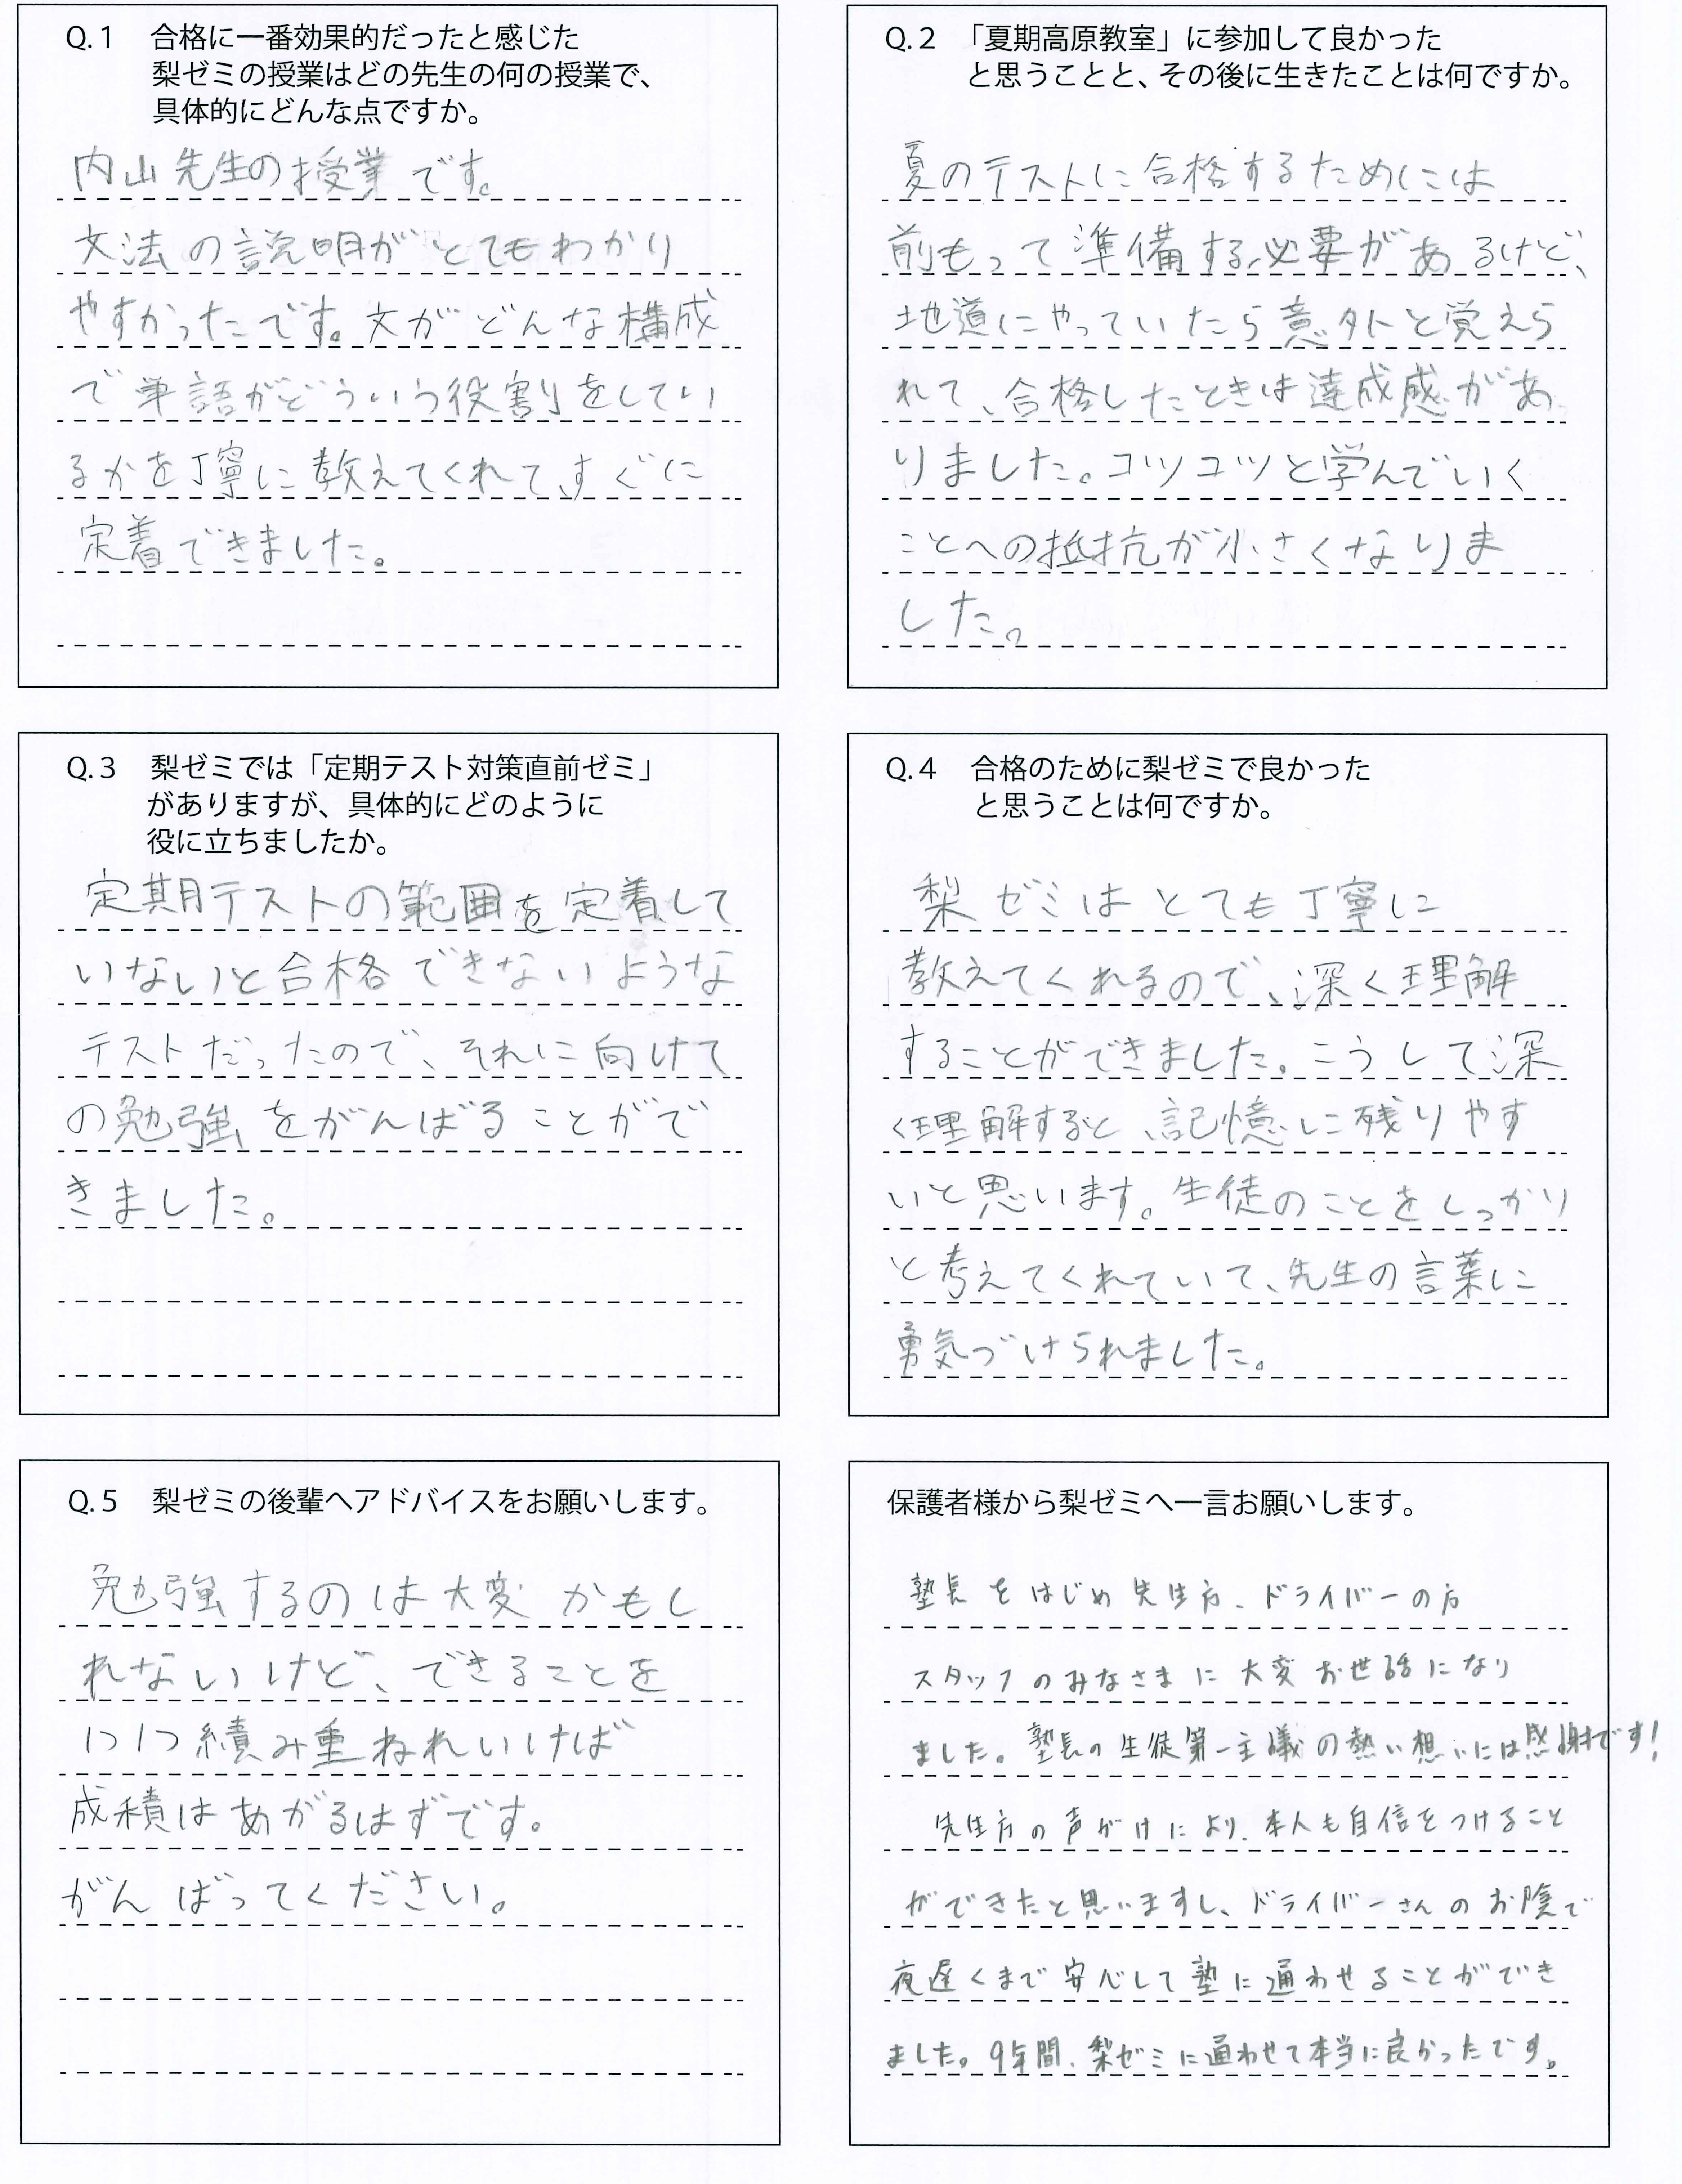 Q.1 合格に一番効果的だったと感じた
梨ゼミの授業はどの先生の何の授業で、
具体的にどんな点ですか。
内山先生の授業です。
文法の説明がとてもわかり
やすかったです。文がどんな構成
で単語がどういう役割をしてい
るかを丁寧に教えてくれて、すぐに
定着できました。
Q.2 「夏期高原教室」に参加して良かった
と思うことと、その後に生きたことは何ですか。
夏のテストに合格するためには
前もって準備する必要があるけど、
地道にやっていたら意外と覚えら
れて、合格したときは達成感があ
りました。コツコツと学んでいく
ことへの抵抗が小さくなりま
した。
Q.3 梨ゼミでは「定期テスト対策直前ゼミ」
がありますが、具体的にどのように
役に立ちましたか。
定期テストの範囲を定着して
いないと合格できないような
テストだったので、それに向けて
の勉強をがんばることがで
きました。
Q.4 合格のために梨ゼミで良かった
と思うことは何ですか。
梨ゼミはとても丁寧に
教えてくれるので、深く理解
することができました。こうして深
く理解すると、記憶に残りやす
いと思います。生徒のことをしっかり
と考えてくれていて、先生の言葉に
勇気づけられました。
Q.5 梨ゼミの後輩へアドバイスをお願いします。
勉強するのは大変かもし
れないけど、できることを
1つ1つ積み重ねれいけば
成積はあがるはずです。
がんばってください。
保護者様から梨ゼミへ一言お願いします。
塾長をはじめ先生方、ドライバーの方
スタッフのみなさまに大変お世話になり
ました。塾長の生徒第一主議の熱い想いには感謝です!
先生方の声がけにより、本人も自信をつけること
ができたと思いますし、ドライバーさんのお陰で
夜遅くまで安心して塾に通わせることができ
ました。9年間、梨ゼミに通わせて本当に良かったです。